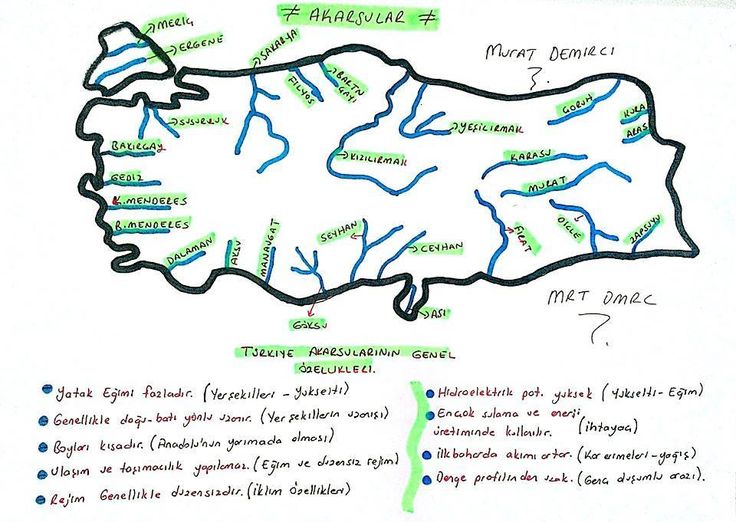 ≠ AKARSULAR ≠
MERİÇ
ERGENE
SAKARYA
FİLYOS
BARTIN
ÇAYI
MURAT DEMİRCİ
ÇORUH
KURA
ARAS
SUSURLUK
YEŞİLIRMAK
BAKIRÇAY
KIZILIRMAK
KARASU
GEDİZ
MURAT
K.MENDERES
B.MENDERES
DİCLE
SEYHAN
FIRAT
ZAPSUYU
DALAMAN
AKSU
MANAVGAT
CEYHAN
GÖKSU
ASİ
MRT DMRC
TÜRKİYE AKARSULARININ GENEL
ÖZELLİKLERİ.
Yatak Eğimi fazladır. (Yerşekilleri - Yükselti)
Genellikle doğu-batı yönlü uzanır. (Yerşekillerin uzanışı)
Boyları kısadır. (Anadolu'nun yarımada olması)
Ulaşım ve taşımacılık yapılamaz. (Eğim ve düzensiz rejim)
Rejim Genellikle düzensizdir. (İklim Özellikleri)
Hidroelektrik pot. yüksek (Yükselti - Eğim)
Ençok sulama ve enerji
üretiminde kullanılır. (ihtiyaç)
İlkbaharda akımı artar. (Kar erimeleri - yağış)
Denge profilinden uzak. (Genç oluşumlu arazi).